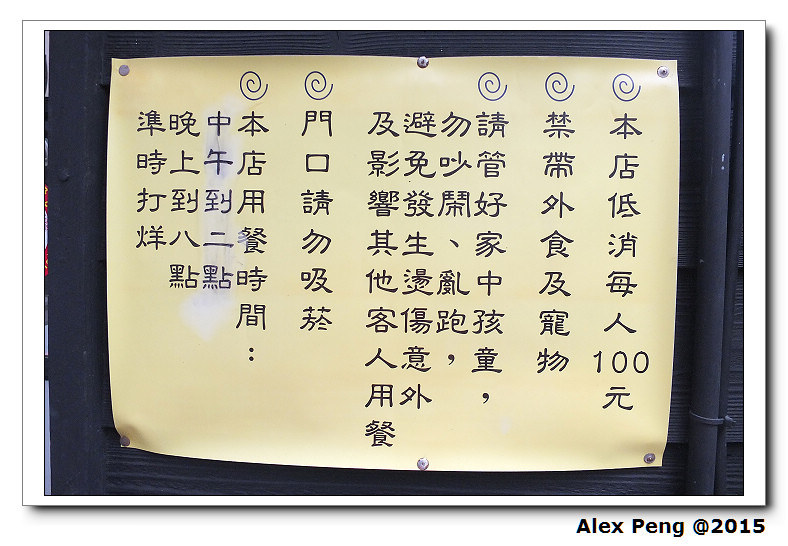 本店低消每人100元
禁帶外食及寵物
請管好家中孩童，
勿吵鬧、亂跑，
避免發生燙傷意外
及影響其他客人用餐
門口請勿吸菸
本店用餐時間：
中午到二點
晚上到八點
準時打烊
Alex Peng @2015